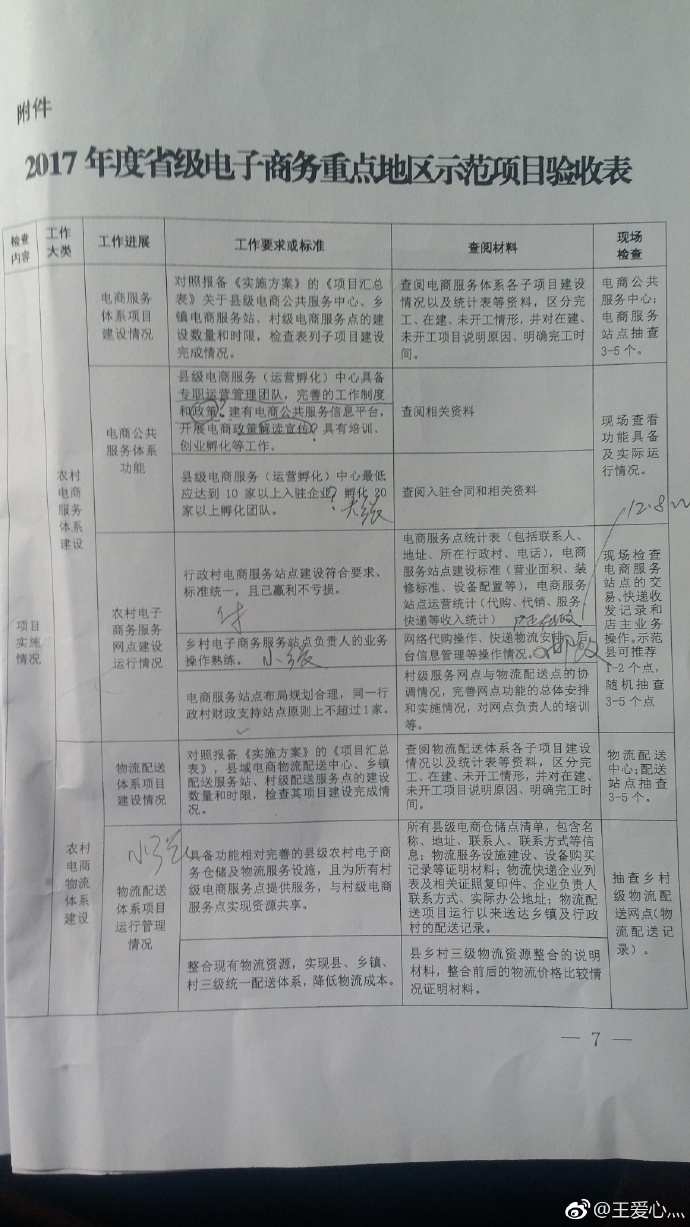 附件
2017 年度省级电子商务重点地区示范项目验收表
检查
内容
工作
大类
工作进展
工作要求或标准
查阅材料
现场
检查
项目
实施
情况
农村
电商
服务
体系
建设
电商服务
体系项目
建设情况
对照报备《实施方案》的《项目汇总
表》关于县级电商公共服务中心、乡
镇电商服务站、村级电商服务点的建
设数量和时限，检查表列子项目建设
完成情况。
查阅电商服务体系各子项目建设
情况以及统计表等资料，区分完
工、在建、未开工情形，并对在建、
未开工项目说明原因、明确完工时
间。
电商公共
服务中心；
电商服务
站点抽查
3-5 个。
电商公共
服务体系
功能
县级电商服务（运营孵化）中心具备
专职运营管理团队，完善的工作制度
和政策。建有电商公共服务信息平台，
开展电商政策解读宣传？具有培训、
创业孵化等工作。
查阅相关资料
现场查看
功能具备
及实际运
行情况。
县级电商服务（运营孵化）中心最低
应达到 10 家以上入驻企业？孵化 20
家以上孵化团队。
大张
查阅入驻合同和相关资料
12.8
农村电子
商务服务
网点建设
运行情况
行政村电商服务站点建设符合要求、
标准统一，且已赢利不亏损。
电商服务点统计表（包括联系人、
地址、所在行政村、电话），电商
服务站点建设标准（营业面积、装
修标准、设备配置等），电商服务
站点运营统计（代购、代销、服务、
快递等收入统计）
现场检查
电商服务
站点的交
易、快递收
发记录和
店主业务
操作。示范
县可推荐
1-2 个点，
随机抽查
3-5 个点
乡村电子商务服务站点负责人的业务
操作熟练。
小张
网络代购操作、快递物流安排、后
台信息管理等操作情况。
邮政
电商服务站点布局规划合理，同一行
政村财政支持站点原则上不超过 1 家。
村级服务网点与物流配送点的协
调情况，完善网点功能的总体安排
和实施情况，对网点负责人的培训
等。
农村
电商
物流
体系
建设
物流配送
体系项目
建设情况
对照报备《实施方案》的《项目汇总
表》，县域电商物流配送中心、乡镇
配送服务站、村级配送服务点的建设
数量和时限，检查其项目建设完成情
况。
查阅物流配送体系各子项目建设
情况以及统计表等资料，区分完
工、在建、未开工情形，并对在建、
未开工项目说明原因、明确完工时
间。
物流配送
中心；配送
站点抽查
3-5 个。
小张
物流配送
体系项目
运行管理
情况
具备功能相对完善的县级农村电子商
务仓储及物流服务设施，且为所有村
级电商服务点提供服务，与村级电商
服务点实现资源共享。
所有县级电商仓储点清单，包含名
称、地址、联系人、联系方式等信
息；物流服务设施建设、设备购买
记录等证明材料；物流快递企业列
表及相关证照复印件、企业负责人
联系方式、实际办公地址；物流配
送项目运行以来送达乡镇及行政
村的配送记录。
抽查乡村
级物流配
送网点（物
流配送记
录）。
整合现有物流资源，实现县、乡镇、
村三级统一配送体系，降低物流成本。
县乡村三级物流资源整合的说明
材料，整合前后的物流价格比较情
况证明材料。
— 7 —
@王爱心灬